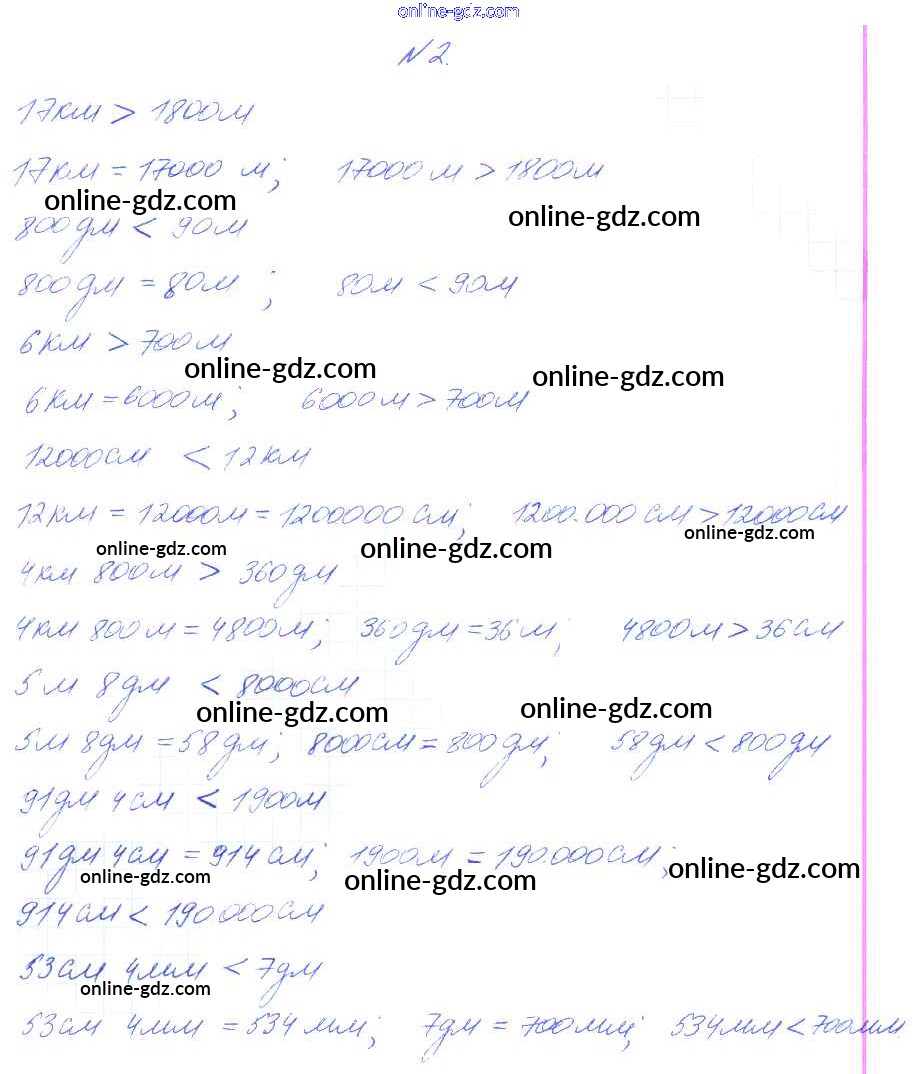 online-gdz.com
N2.
17км > 1800м
17км = 17000 м; 17000м > 1800м
online-gdz.com
online-gdz.com
800дм < 90м
800дм = 80м ; 80м < 90м
6км > 700м
online-gdz.com
online-gdz.com
6км = 6000м; 6000м > 700м
12000см < 12км
12км = 12000м = 1200000 см; 1200.000 см > 12000см
online-gdz.com
online-gdz.com
online-gdz.com
4км 800м > 360дм
4км 800м = 4800м; 360дм = 36м; 4800м > 36см
5м 8дм < 8000см
online-gdz.com
online-gdz.com
5м 8дм = 58дм; 8000см = 800дм; 58дм < 800дм
91дм 4см < 1900м
91дм 4см = 914см; 1900м = 190.000см;
online-gdz.com
online-gdz.com
online-gdz.com
914см < 190000см
53см 4мм < 7дм
online-gdz.com
53см 4мм = 534мм; 7дм = 700мм; 534мм < 700мм